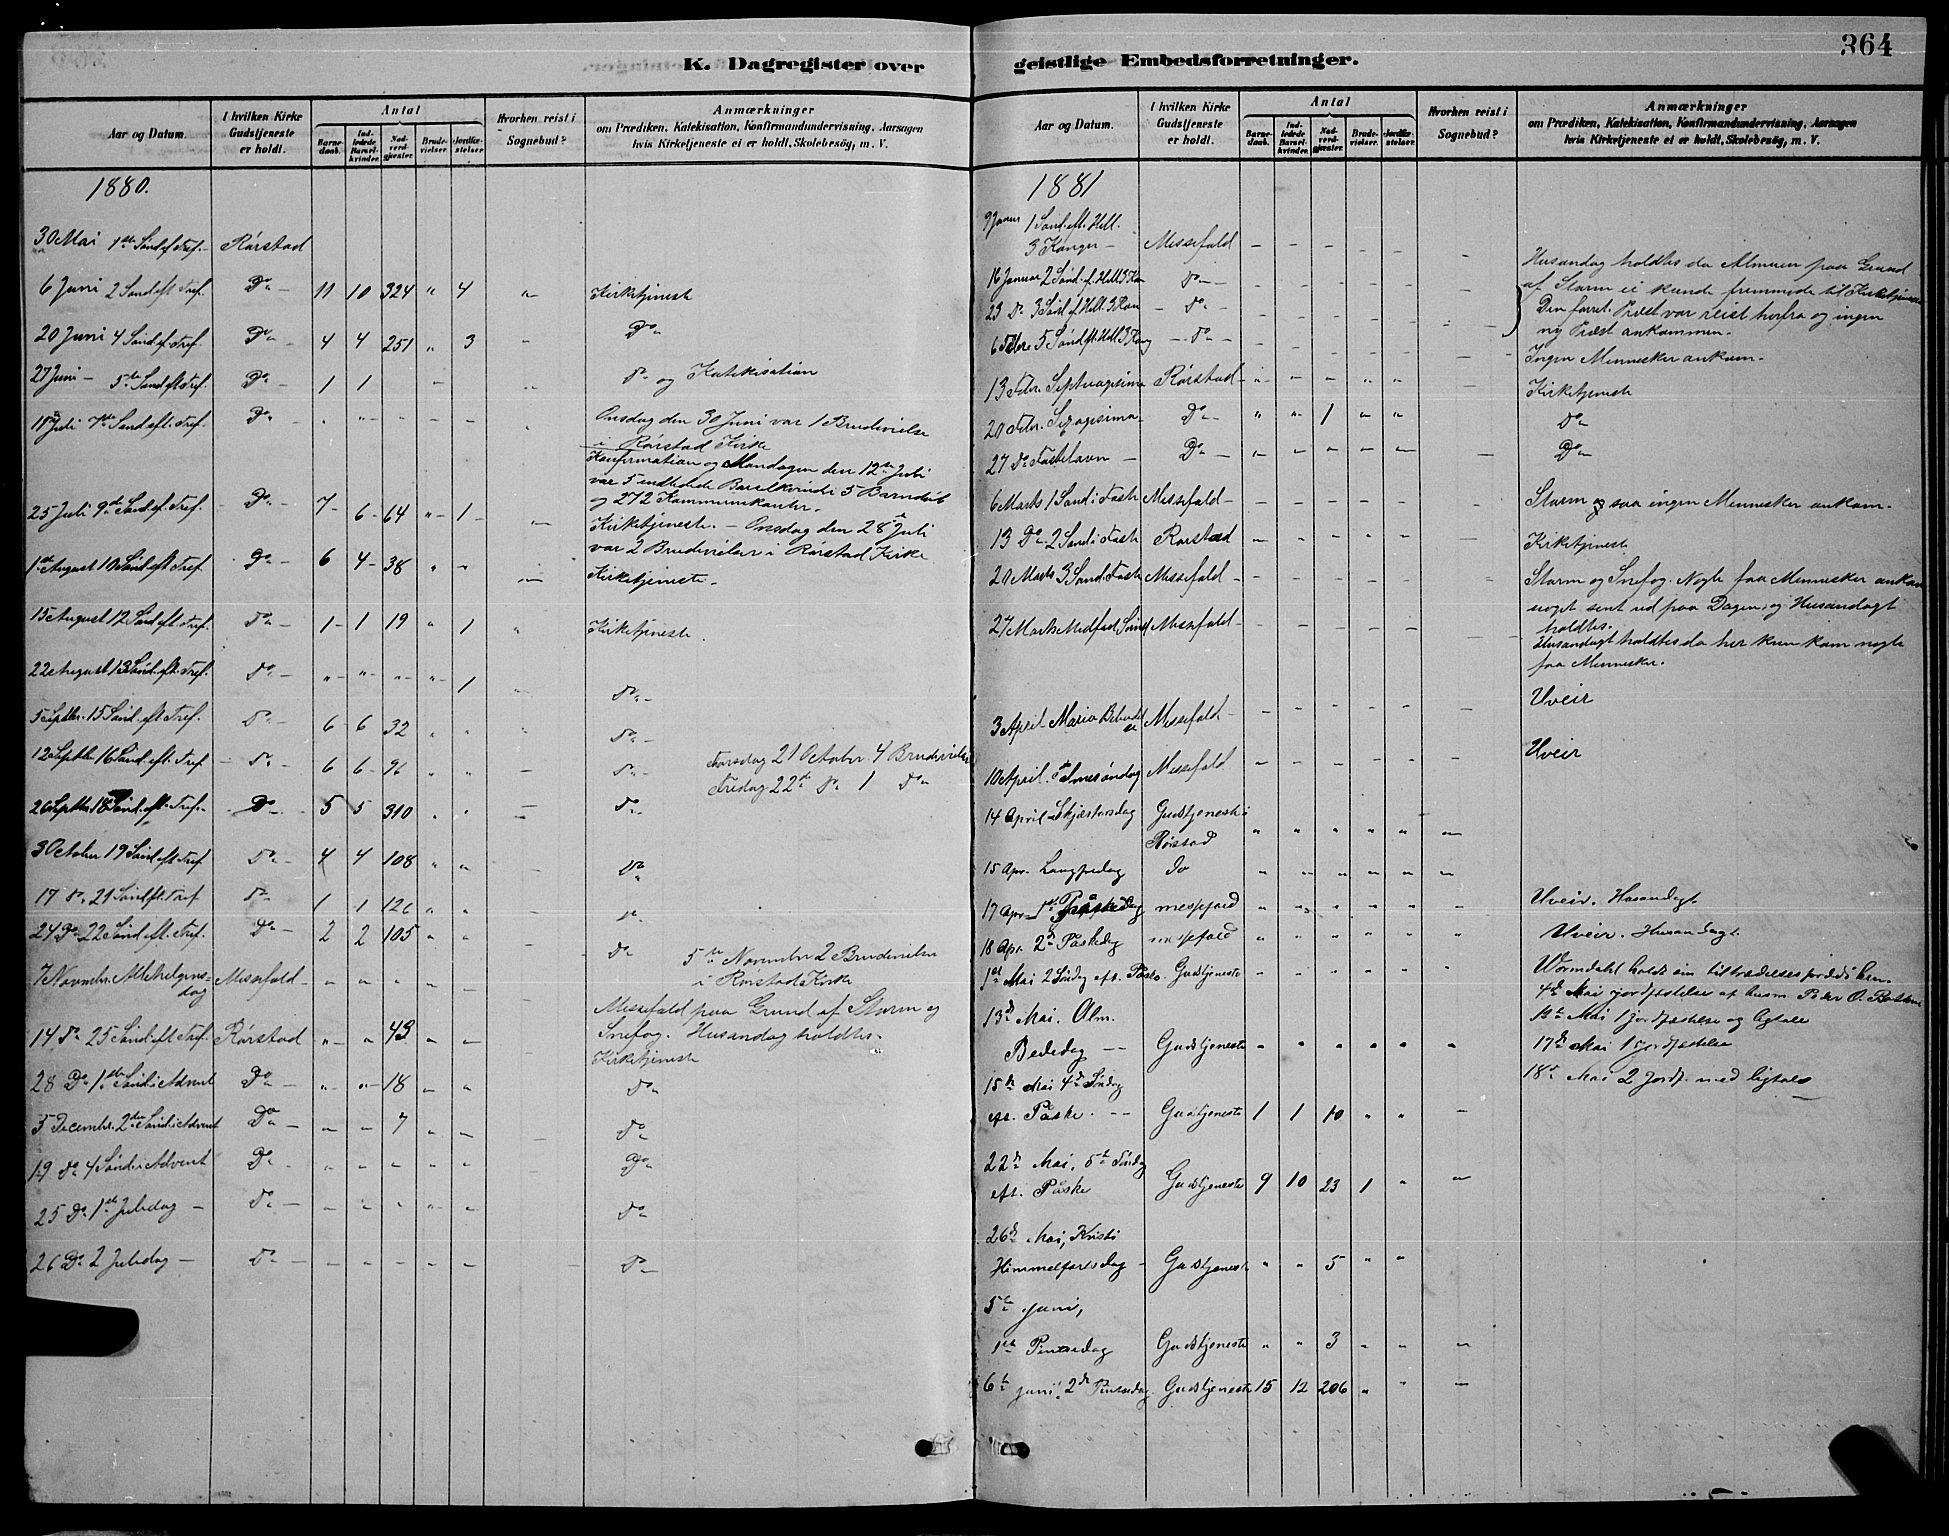 364
K. Dagregister over geistlige Embedsforretninger.
Aar og Datum.
I hvilken Kirke Gudstjeneste er holdt.
Antal
Barnedaab.
Indledede Barselkvinder.
Nadverdgjester.
Brudevielser.
Jordfæstelser.
Hvorhen reist i Sognebud?
Anmærkninger
om Prædiken, Katekisation, Konfirmandundervisning, Aarsagen
hvis Kirketjeneste ei er holdt, Skolebesøg, m. V.
1880.
30 Mai 1ste Sønd. ef. Tref. - Rørstad
6 Juni 2 Sønd eft Tref. Do - 11 10 324 " 4 " Kirketjeneste
20 Juni 4 Sønd ef. Tref. Do - 4 4 251 " 3 " Do
27 Juni - 5te Sønd eft Tref. Do - 1 1 - " Do og Katekisation
Juli 7de Sønd eft. Tref. Do - " " - - - " Onsdag den 30 Juni var 1 Brudevielse
i Rørstad Kirke
Konfirmation og Mandagen den 12te Juli
var 5 indledede Barselkvinder 5 Barnedåb
og 272 Kommunikanter.
25 Juli 9de Sønd. ef. Tref. Do - 7 - 6 - 64 " - 1 - Kirketjeneste. - Onsdag den 28de Juli
var 2 Brudevielser i Rørstad Kirke
1ste August 10 Sønd eft Tref. Do - 6 4 - 38 " " - Kirketjeneste -
15 August 12 Sønd eft. Tref. Do - 1 - 1 19 " 1 " Kirketjeneste.
22 August 13 Sønd. eft. Tref. Do - " - " - " - " - 1 " Do -
5 Septbr. 15 Sønd. eft Tref. Do - 6 6 32 " " Do -
12 Septbr 16 Sønd. eft. Tref. - Do - 6 6 - 96 " " - Do - Torsdag 21 October 4 Brudevielser
Fredag 22de Do 1 Do
26 Septbr. 18 Sønd. eft. Tref. - Do - 5 5 310 " " - Do
3 October 19 Sønd eft Tref. Do - 4 4 108 " " - Do
17 Do 21 Sønd eft. Tref Do 1 1 126 " " - Do
24 Do 22 Sønd eft. Tref. Do - 2 2 105 " " - Do 5te November 2 Brudevielser
i Rørstad Kirke
7 Novembr. Allehelgensdag Messefald - " " " - - - Messefald paa Grund af Storm og
Snefog. Husandag holdtes.
14 Do 25 Sønd eft Tref. Rørstad " - " 43 - - Kirketjeneste
28 Do 1ste Sønd i Advent Do - " - " - 18 - " Do
5 Decembr. 2den Sønd i Advent Do - - - 7 - - - Do
19 Do 4 Sønd i Advent Do - " " - " " Do
25 Do 1ste Juledag - Do - - " " - - Do
26 Do 2 Juledag - Do - - - - - - - Do -
Aar og Datum.
I hvilken Kirke Gudstjeneste er holdt.
Antal
Barnedaab.
Indledede Barselkvinder.
Nadverdgjester.
Brudevielser.
Jordfæstelser.
Hvorhen reist i Sognebud?
Anmærkninger
om Prædiken, Katekisation, Konfirmandundervisning, Aarsagen
hvis Kirketjeneste ei er holdt, Skolebesøg, m. V.
1881
9 Januar 1 Sønd. eft. Hell.
3 Konger - Messefald - - - - - - Husandag holdtes da Almuen paa Grund
af Storm ei kunde fremmøde til Kirketjeneste
16 Januar 2 Sønd. ef. Hell. 3 Kon Do - - - - - - - Den forrt. Præst var reist herfra og ingen
23 Do 3 Sønd ef Hell. 3 Kon - Do - - - - - - - ny Præst ankommen.
6 Febr. 5 Sønd eft. Hell 3 Kong - Do - - - - - - - Ingen Mennesker ankom -
13 Febr. Septuagisima Rørstad - " - - " " - Kirketjeneste
20 Febr. Sexagisima - Do - " " 1 " " Do
27 Do Fastelavn - Do - - - - - - - Do
6 Marts 1 Sønd i Faste Messefald - - - - - - - Storm og saa ingen Mennesker ankom.
13 Do 2 Sønd i Faste Rørstad - " - " " - Kirketjeneste
20 Marts 3 Sønd. i Faste Messefald - - - - - - - Storm og Snefog. Nogle faa Mennesker ankom
noget sent ud paa Dagen, og Husandagt
holdtes.
27 Marts Midfast Sønd Messefald - - - - - - - Husandagt holdtes da her kun kom nogle
faa Mennesker.
3 April Maria Bebudelse Messefald - - - - - - - Uveir
10 April. Palmesøndag Messefald - - - - - - Uveir
14 April Skjærtorsdag Gudstjeneste i
Rørstad " " " " " "
15 Apr. Langfredag Do " " " " " "
17 Apr - 1ste Påskedag messefald " " " " " " Uveir. Husandagt
18 Apr. 2den Påskedag messefald " " " " " " Uveir. Husandagt
1ste Mai 2 Søndag eft. Påske - Gudstjeneste " " " " " " Wormdahl holdt sin tiltrædelsesprædiken.
4de Mai jordfæstelse af husm. Peder O.
13de Mai. Alm. Mai 1 jordfæstelse og ligtale
Bededag - - Gudstjeneste " " " " " " 17de Mai 1 jordfæstelse
15de Mai 4de Søndag 18de Mai 2 jordf. med ligtale
eft. Påske. - - Gudstjeneste 1 1 10 " " -
22de Mai. 5te Søndag
eft. Påske Gudstjeneste 9 10 23 1 " "
26de Mai, Kristi
Himmelfartsdag - Gudstjeneste " " 5 " "
5te Juni,
1ste Pintsedag Gudstjeneste " " 3 " " "
6te juni 2den Pintsedag. Gudstjeneste 15 12 206 " " -